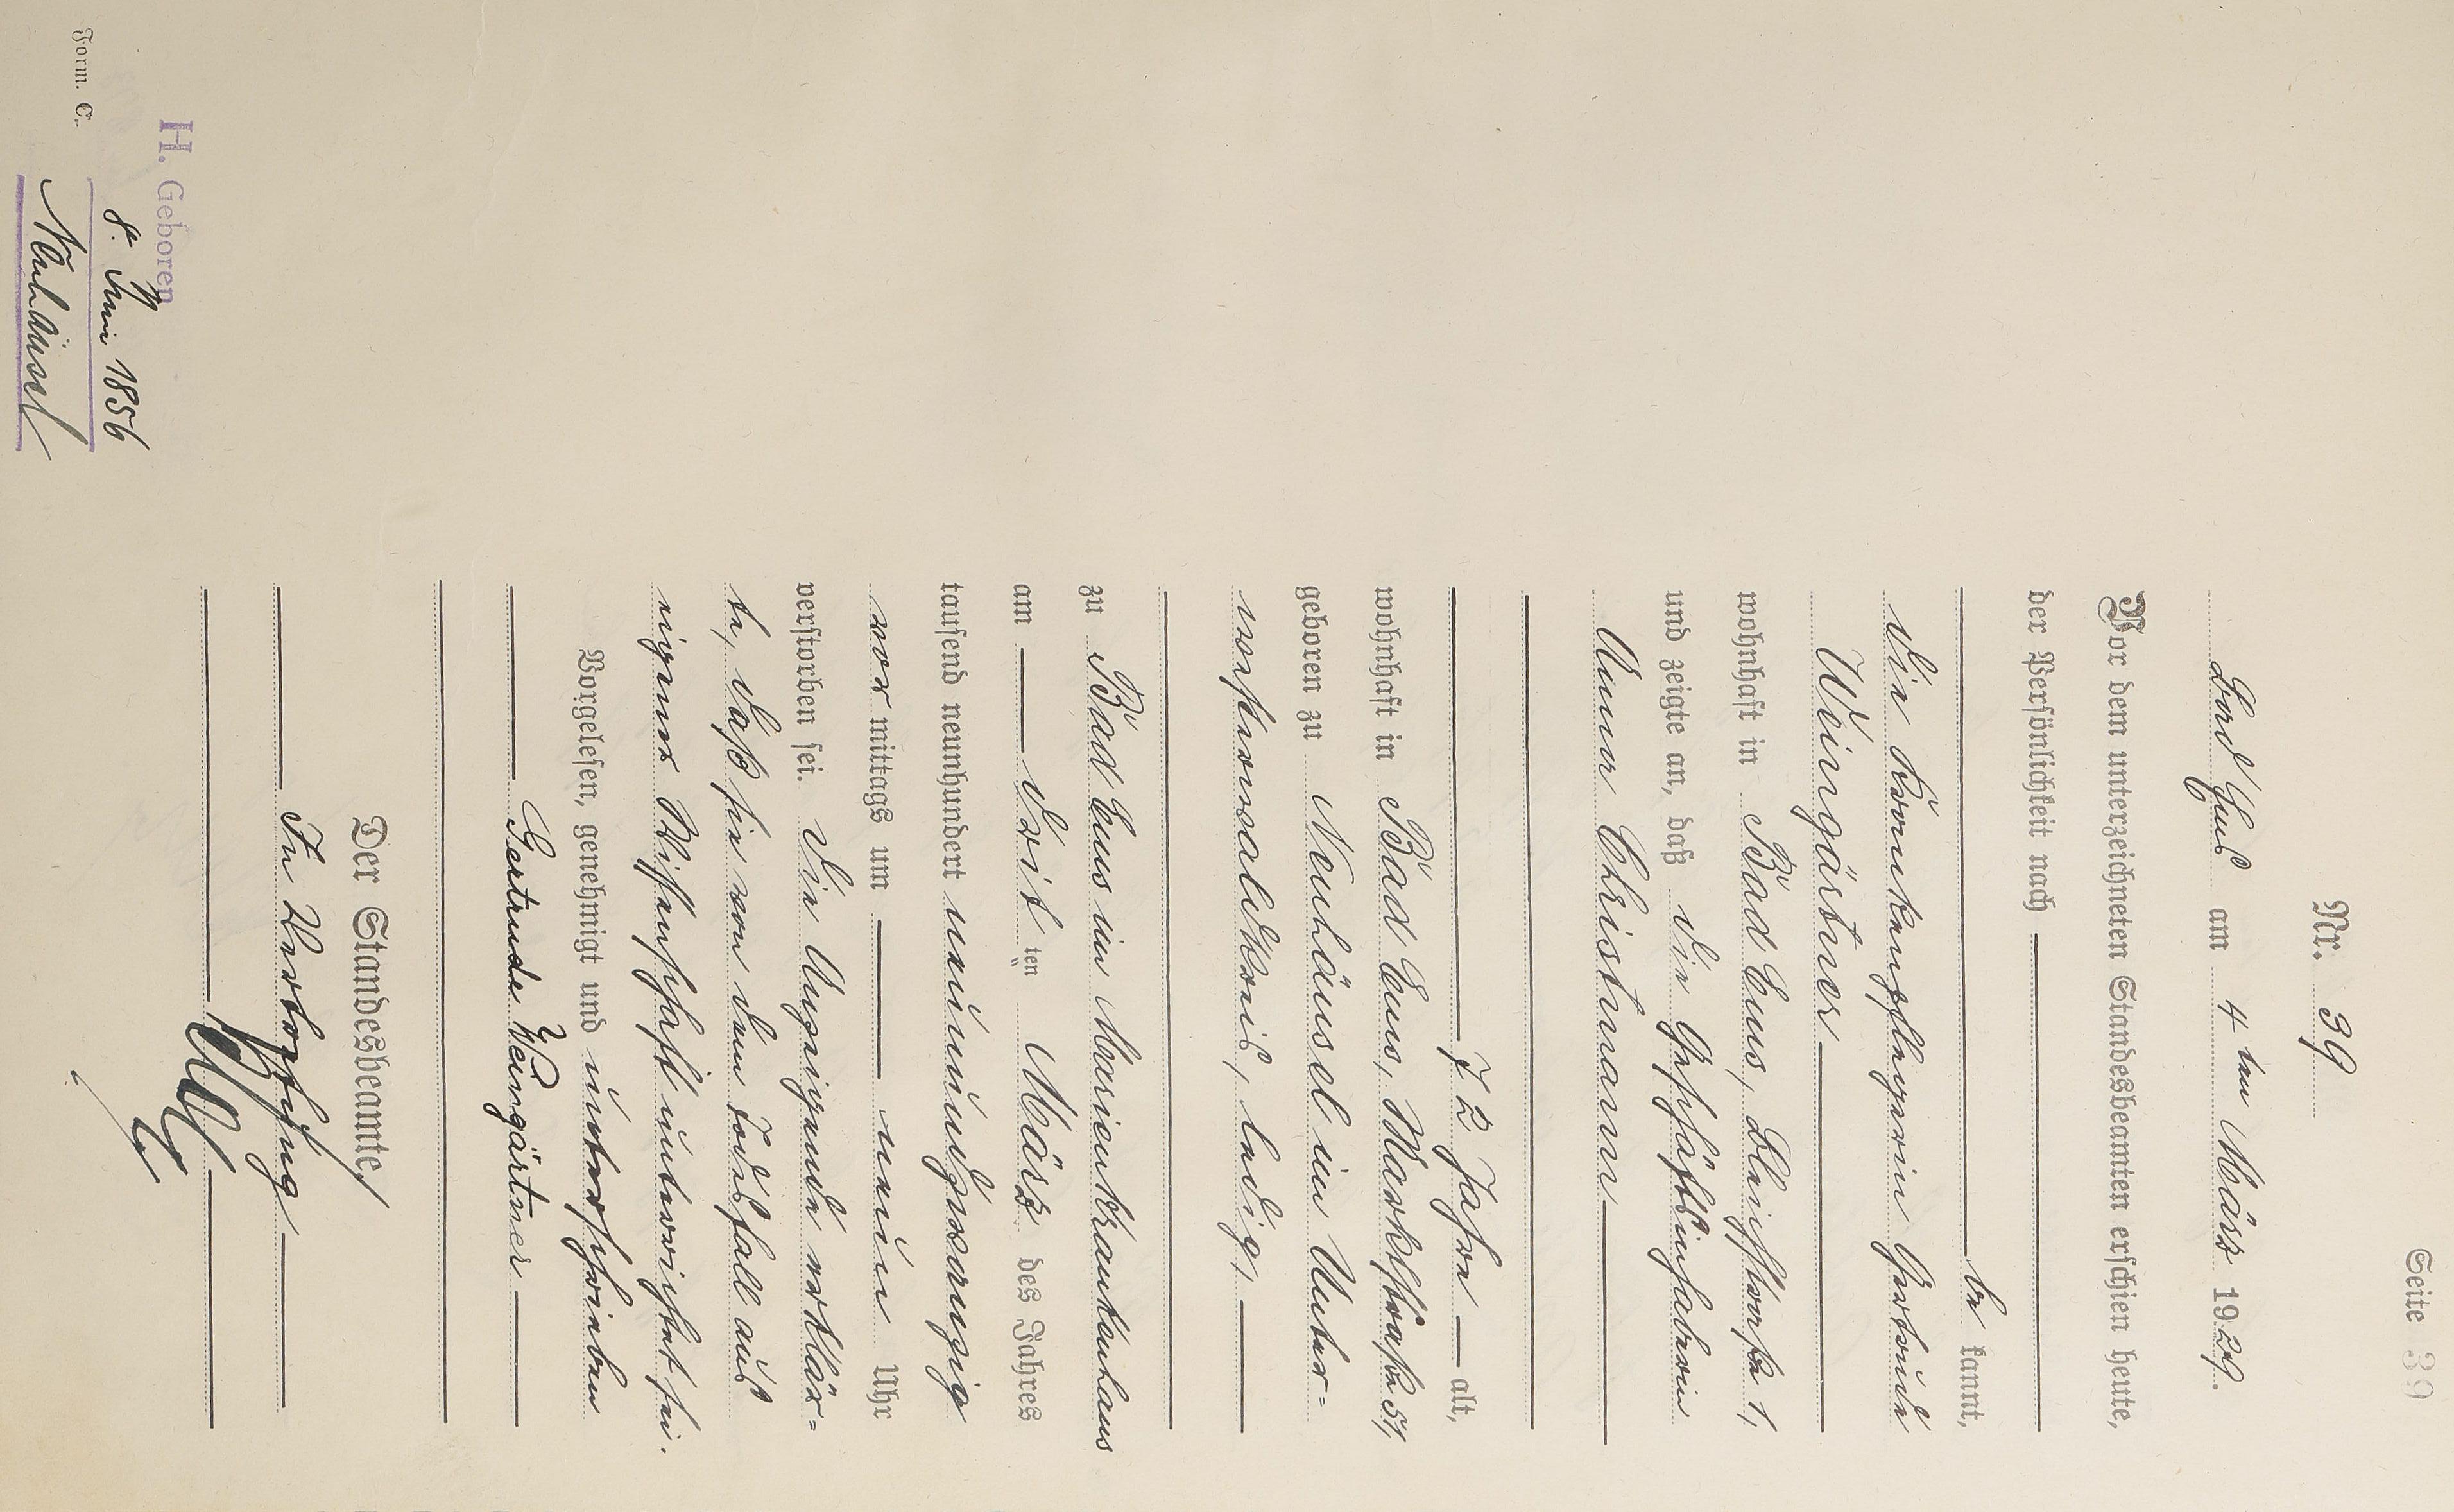 Seite 39
Nr. 39
Bad Ems am 4 ten März 1929.
Vor dem unterzeichneten Standesbeamten erschien heute,
der Persönlichkeit nach
be kannt,
die Krankenpflegerin Gertrude
Weingärtner
wohnhaft in Bad Ems, Bleichstraße 1,
und zeigte an, daß die Geschäftsinhaberin
Anna Christmann
72 Jahre alt,
wohnhaft in Bad Ems, Marktstraße 51,
geboren zu Neuhäusel im Unter-
westerwaldkreis, ledig,
zu Bad Ems im Marienkrankenhaus
am drit ten März des Jahres
tausend neunhundert neunundzwanzig
vor mittags um neun Uhr
verstorben sei. Die Anzeigende erklär-
te, daß sie von dem Todesfall aus
eigener Wissenschaft unterrichtet sei.
Vorgelesen, genehmigt und unterschrieben
Gertrude Weingärtner
Der Standesbeamte
In Vertretung
Form. C.
H. Geboren
8. Juni 1856
Neuhäusel